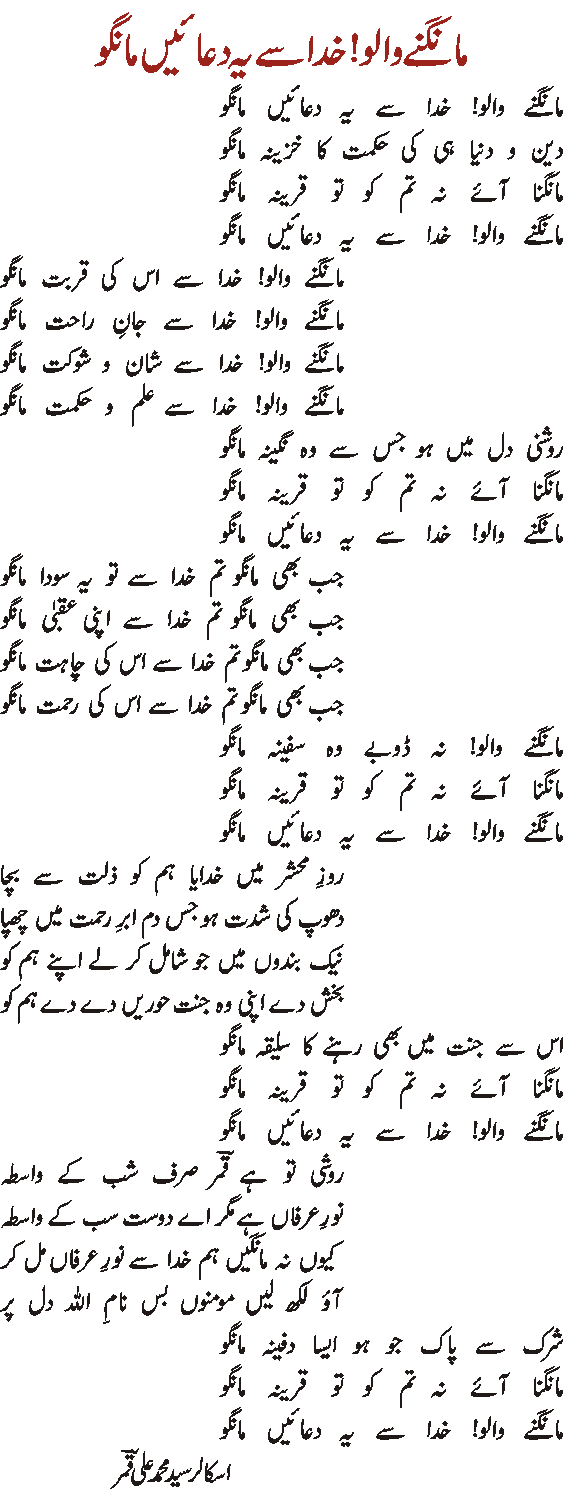 مانگنے والو! خدا سے یہ دعائیں مانگو
مانگنے والو! خدا سے یہ دعائیں مانگو
دین و دنیا ہی کی حکمت کا خزینہ مانگو
مانگنا آئے نہ تم کو تو قرینہ مانگو
مانگنے والو! خدا سے یہ دعائیں مانگو
مانگنے والو! خدا سے اس کی قربت مانگو
مانگنے والو! خدا سے جانِ راحت مانگو
مانگنے والو! خدا سے شان و شوکت مانگو
مانگنے والو! خدا سے علم و حکمت مانگو
روشنی دل میں ہو جس سے وہ نگینہ مانگو
مانگنا آئے نہ تم کو تو قرینہ مانگو
مانگنے والو! خدا سے یہ دعائیں مانگو
جب بھی مانگو تم خدا سے تو یہ سودا مانگو
جب بھی مانگو تم خدا سے اپنی عقبیٰ مانگو
جب بھی مانگو تم خدا سے اس کی چاہت مانگو
جب بھی مانگو تم خدا سے اس کی رحمت مانگو
مانگنے والو! نہ ڈوبے وہ سفینہ مانگو
مانگنا آئے نہ تم کو تو قرینہ مانگو
مانگنے والو! خدا سے یہ دعائیں مانگو
روزِ محشر میں خدایا ہم کو ذلت سے بچا
دھوپ کی شدت ہو جس دم ابرِ رحمت میں چھپا
نیک بندوں میں جو شامل کر لے اپنے ہم کو
بخش دے اپنی وہ جنت حوریں دے دے ہم کو
اس سے جنت میں بھی رہنے کا سلیقہ مانگو
مانگنا آئے نہ تم کو تو قرینہ مانگو
مانگنے والو! خدا سے یہ دعائیں مانگو
روشی تو ہے قمرؔ صرف شب کے واسطہ
نورِ عرفاں ہے مگر اے دوست سب کے واسطہ
کیوں نہ مانگیں ہم خدا سے نورِ عرفاں مل کر
آؤ لکھ لیں مومنوں بس نامِ اللہ دل پر
شرک سے پاک جو ہو ایسا دفینہ مانگو
مانگنا آئے نہ تم کو تو قرینہ مانگو
مانگنے والو! خدا سے یہ دعائیں مانگو
اسکالر سید محمد علی قمرؔ